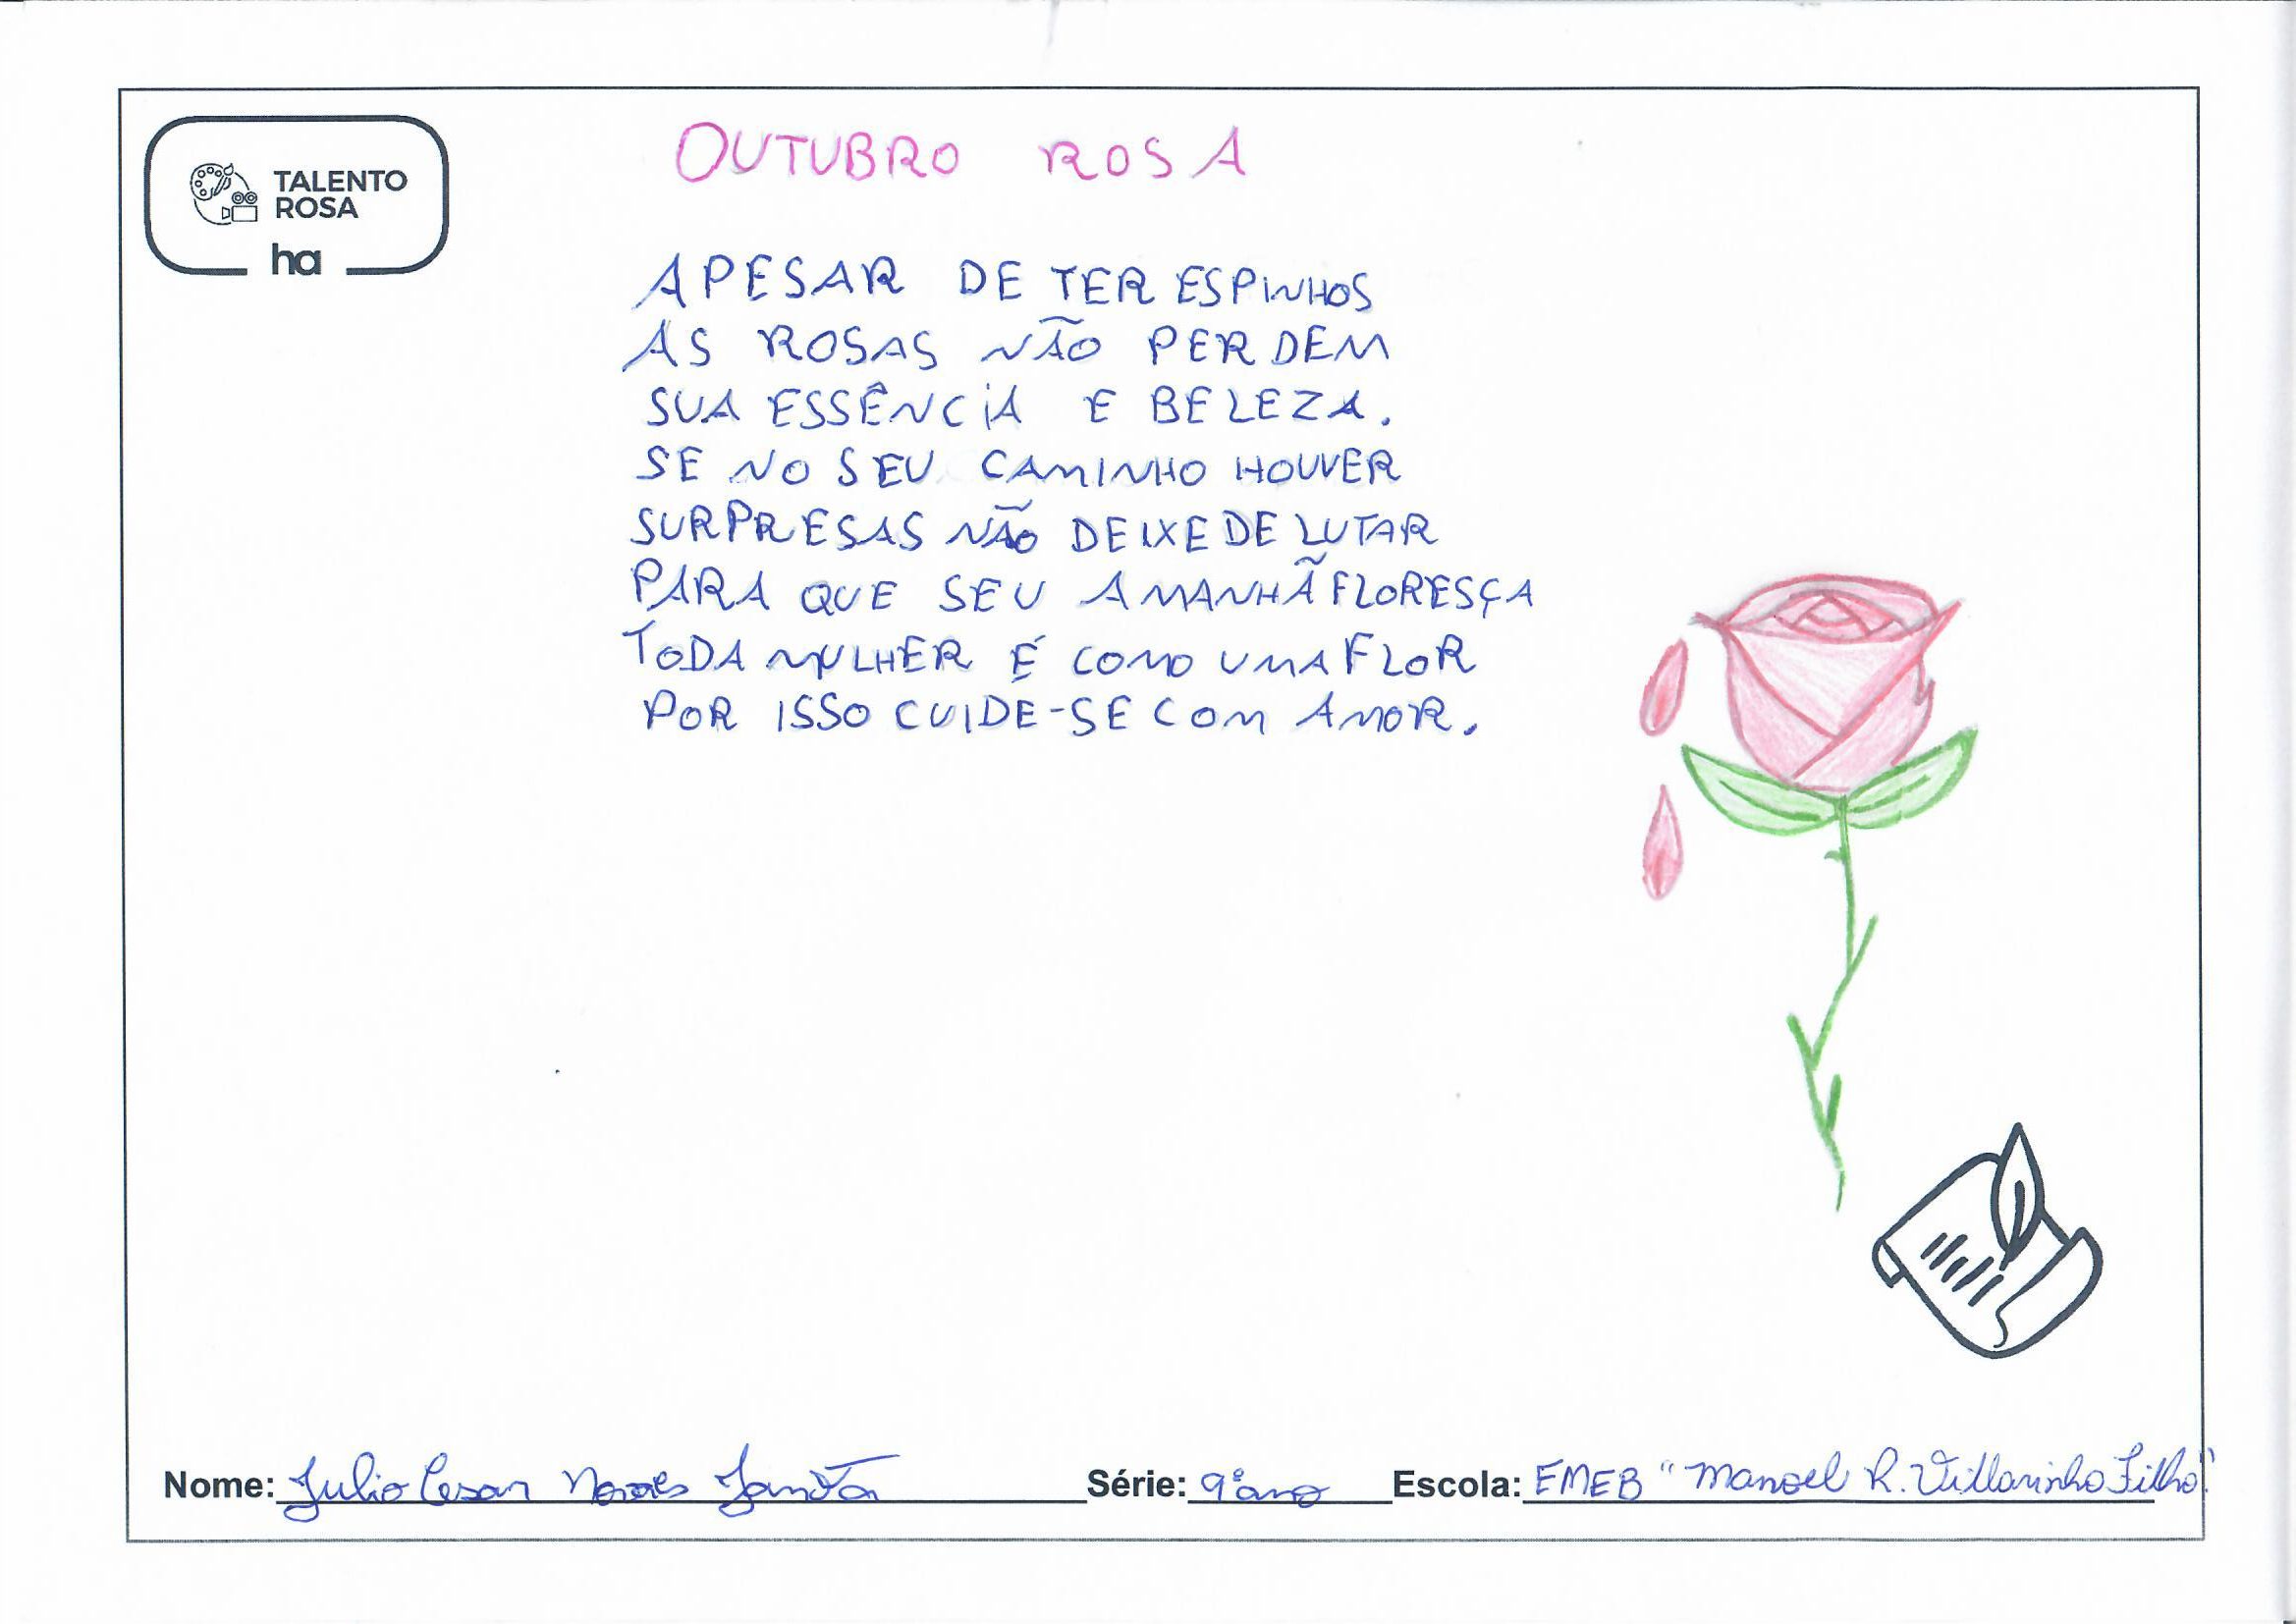 TALENTO
ROSA
ha
OUTUBRO ROSA
APESAR DE TER ESPINHOS
AS ROSAS NÃO PERDEM
SUA ESSÊNCIA E BELEZA.
SE NO SEU CAMINHO HOUVER
SURPRESAS NÃO DEIXE DE LUTAR
PARA QUE SEU AMANHÃ FLORESÇA
TODA MULHER É COMO UMA FLOR
POR ISSO CUIDE-SE COM AMOR.
Nome: Julio Cesar Série: 9º ano Escola: EMEB "Manoel R. Villarinho Filho"